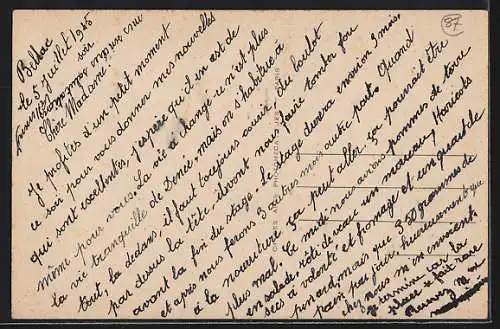 87
Bellac
le 5 juillet 1945
soir
Chère Madame
Je profites d'un petit moment
ce soir pour vous donner mes nouvelles
qui sont excellentes, j'espère qu'il en est de
même pour vous. La vie a changé ce n'est plus
la vie tranquille de mais on s'habitue à
tout, la dedans, il faut toujours courir, du boulot
par dessus la tête, ils vont nous faire tomber fou
avant la fin du stage. Le stage durera environ 3 mois
et après nous ferons 3 autres mois autre part. Quand
à la nourriture, ça peut aller, ça pourrait être
plus mal. Ce midi nous avions pommes de terre
en salade rôti de veau un morceau, Haricots
secs à volonté et fromage et un quart de
pinard mais que 350 grammes de
pain par jour heureusement que
chez nous m'en envoient.
Je termine car la
place se fait rare